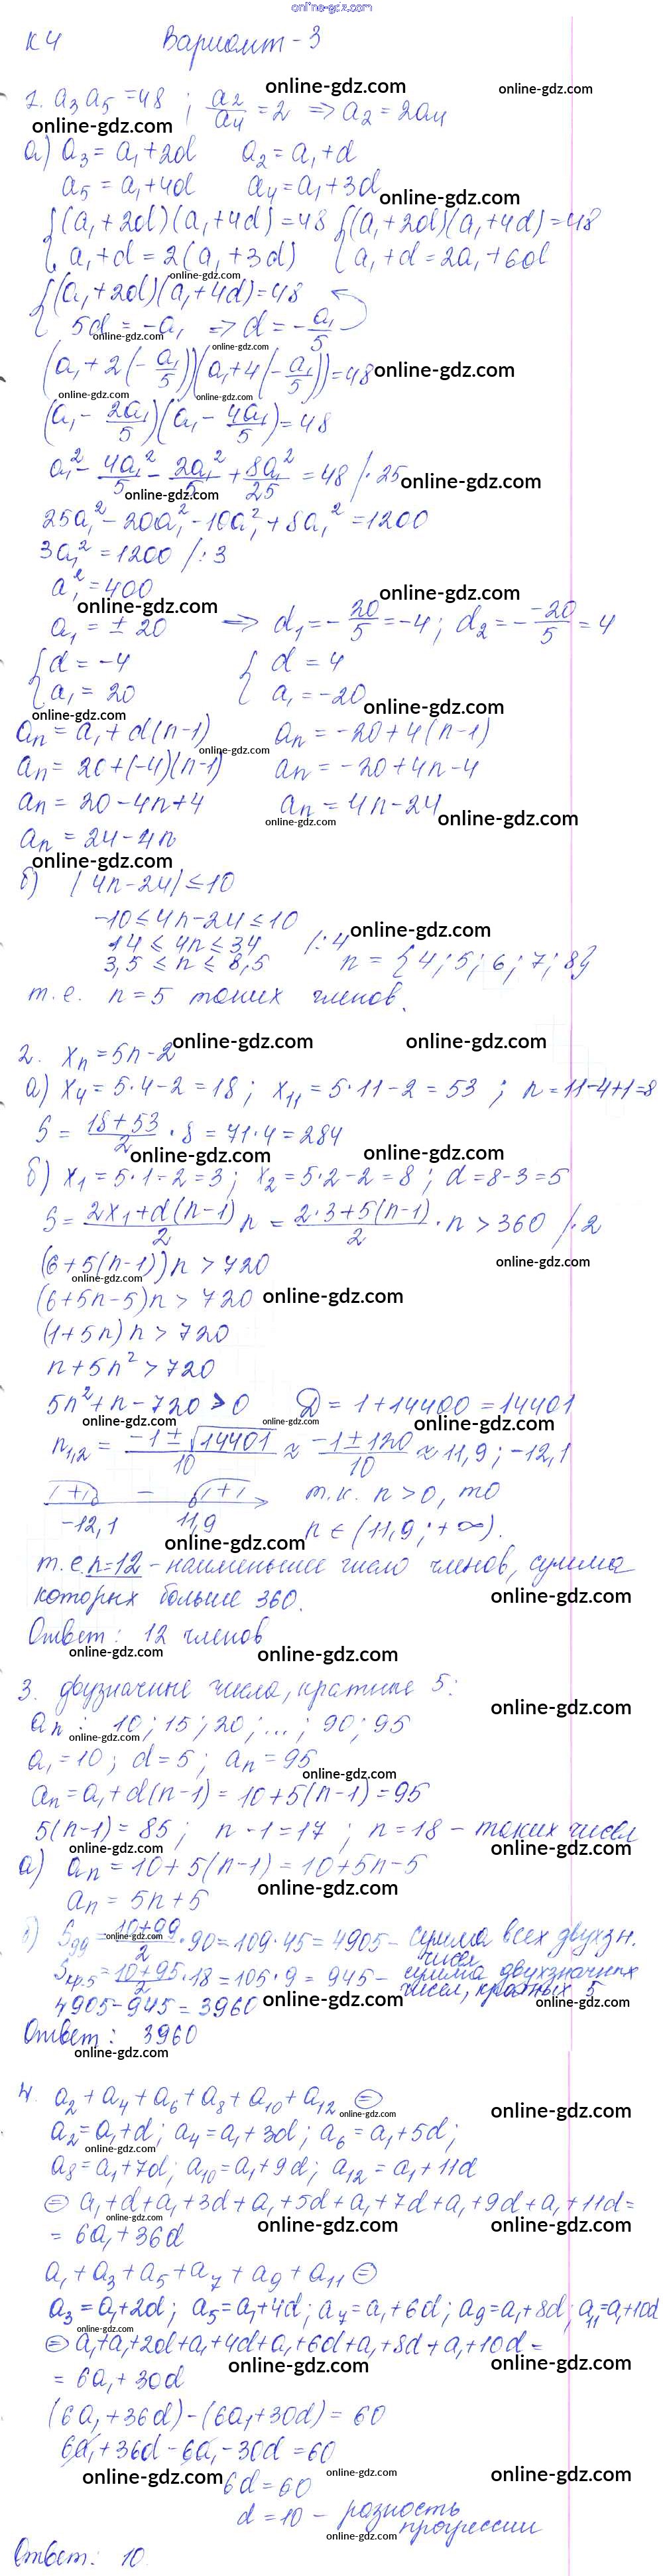 online-gdz.com
К 4 Вариант - 3
1. a₃a₅ = 48 ; a₂/a₄ = 2 ⇒ a₂ = 2a₄
а) a₃ = a₁ + 2d   a₂ = a₁ + d
a₅ = a₁ + 4d   a₄ = a₁ + 3d
{ (a₁ + 2d)(a₁ + 4d) = 48   { (a₁ + 2d)(a₁ + 4d) = 48
{ a₁ + d = 2(a₁ + 3d)   { a₁ + d = 2a₁ + 6d
{ (a₁ + 2d)(a₁ + 4d) = 48
{ 5d = -a₁ ⇒ d = -a₁/5
(a₁ + 2(-a₁/5))(a₁ + 4(-a₁/5)) = 48
(a₁ - 2a₁/5)(a₁ - 4a₁/5) = 48
a₁² - 4a₁²/5 - 2a₁²/5 + 8a₁²/25 = 48 /· 25
25a₁² - 20a₁² - 10a₁² + 8a₁² = 1200
3a₁² = 1200 /: 3
a₁² = 400
a₁ = ± 20 ⇒ d₁ = -20/5 = -4 ; d₂ = - -20/5 = 4
{ d = -4   { d = 4
{ a₁ = 20   { a₁ = -20
aₙ = a₁ + d(n-1)   aₙ = -20 + 4(n-1)
aₙ = 20 + (-4)(n-1)   aₙ = -20 + 4n - 4
aₙ = 20 - 4n + 4   aₙ = 4n - 24
aₙ = 24 - 4n
б) |4n - 24| ≤ 10
-10 ≤ 4n - 24 ≤ 10
14 ≤ 4n ≤ 34 /: 4
3,5 ≤ n ≤ 8,5   n = {4; 5; 6; 7; 8}
т.е. n = 5 таких членов.
2. xₙ = 5n - 2
а) x₄ = 5·4 - 2 = 18 ; x₁₁ = 5·11 - 2 = 53 ; n = 11-4+1 = 8
S = (18 + 53)/2 · 8 = 71·4 = 284
б) x₁ = 5·1 - 2 = 3 ; x₂ = 5·2 - 2 = 8 ; d = 8 - 3 = 5
S = (2x₁ + d(n-1))/2 n = (2·3 + 5(n-1))/2 · n > 360 /· 2
(6 + 5(n-1))n > 720
(6 + 5n - 5)n > 720
(1 + 5n)n > 720
n + 5n² > 720
5n² + n - 720 > 0   D = 1 + 14400 = 14401
n₁,₂ = (-1 ± √14401)/10 ≈ (-1 ± 120)/10 ≈ 11,9 ; -12,1
+ - +   т.к. n > 0, то
-12,1 11,9   n ∈ (11,9 ; +∞).
т.е. n = 12 - наименьшее число членов, сумма
которых больше 360.
Ответ: 12 членов
3. двузначные числа, кратные 5:
aₙ: 10; 15; 20; ...; 90; 95
a₁ = 10 ; d = 5 ; aₙ = 95
aₙ = a₁ + d(n-1) = 10 + 5(n-1) = 95
5(n-1) = 85 ; n - 1 = 17 ; n = 18 - таких чисел
а) aₙ = 10 + 5(n-1) = 10 + 5n - 5
aₙ = 5n + 5
б) S₉₉ = (10 + 99)/2 · 90 = 109·45 = 4905 - сумма всех двухзн. чисел
Sкр.5 = (10 + 95)/2 · 18 = 105·9 = 945 - сумма двухзначных
4905 - 945 = 3960 чисел, кратных 5
Ответ: 3960
4. a₂ + a₄ + a₆ + a₈ + a₁₀ + a₁₂ ⊜
a₂ = a₁ + d ; a₄ = a₁ + 3d ; a₆ = a₁ + 5d ;
a₈ = a₁ + 7d ; a₁₀ = a₁ + 9d ; a₁₂ = a₁ + 11d
⊜ a₁ + d + a₁ + 3d + a₁ + 5d + a₁ + 7d + a₁ + 9d + a₁ + 11d =
= 6a₁ + 36d
a₁ + a₃ + a₅ + a₇ + a₉ + a₁₁ ⊜
a₃ = a₁ + 2d ; a₅ = a₁ + 4d ; a₇ = a₁ + 6d ; a₉ = a₁ + 8d ; a₁₁ = a₁ + 10d
⊜ a₁ + a₁ + 2d + a₁ + 4d + a₁ + 6d + a₁ + 8d + a₁ + 10d =
= 6a₁ + 30d
(6a₁ + 36d) - (6a₁ + 30d) = 60
6a₁ + 36d - 6a₁ - 30d = 60
6d = 60
d = 10 - разность
прогрессии
Ответ: 10.